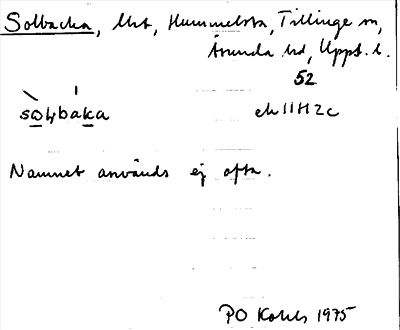 Solbacka, lht, Hummelsta, Tillinge sn,
Åsunda hd, Upps. l.
52
ek 11H2c
sol̥baka
Namnet används ej ofta.
PO Kohls 1975